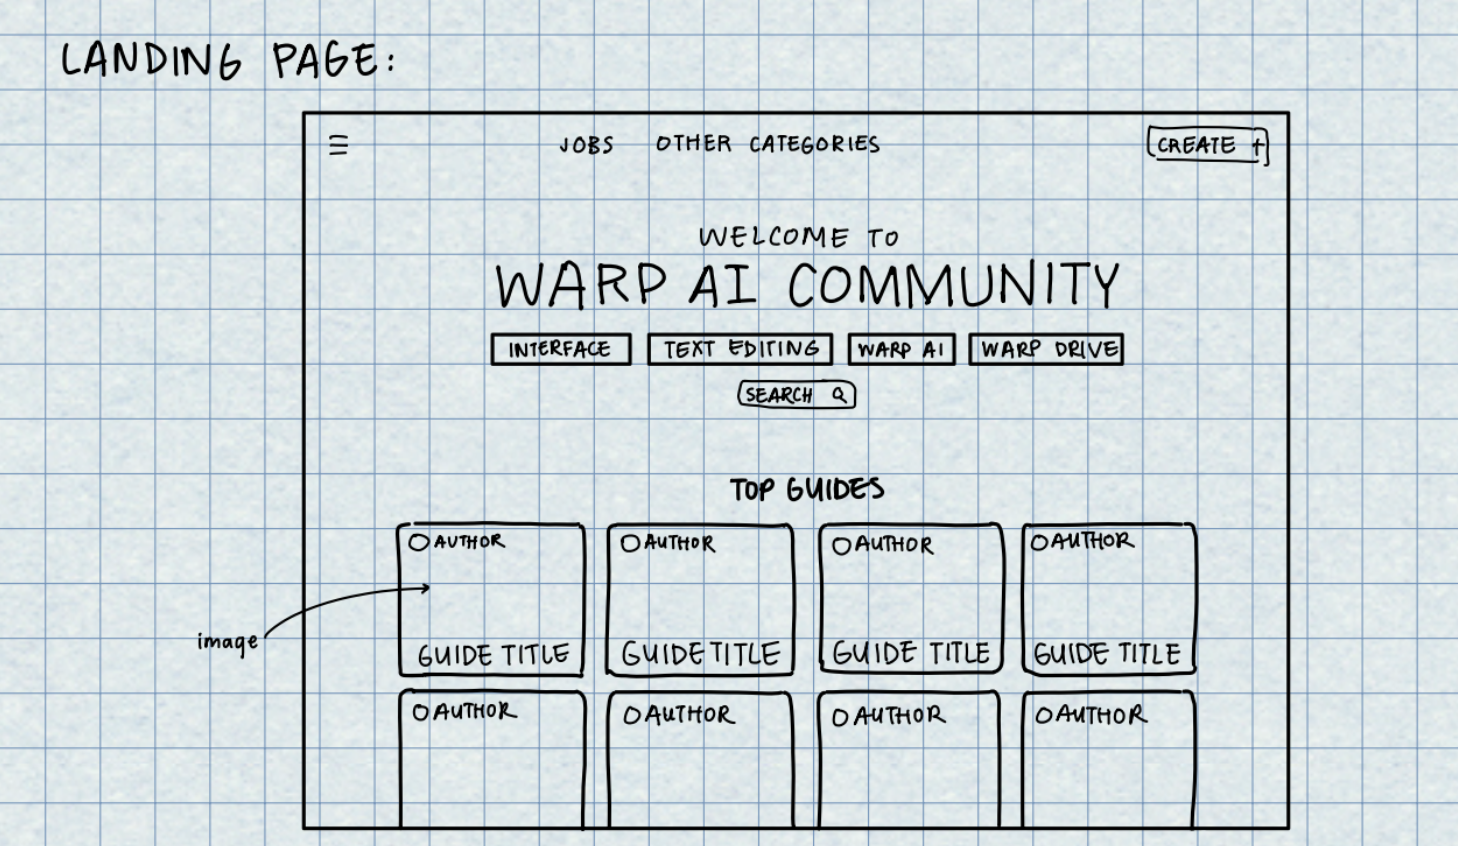 LANDING PAGE:
JOBS OTHER CATEGORIES CREATE +
WELCOME TO
WARP AI COMMUNITY
INTERFACE TEXT EDITING WARP AI WARP DRIVE
SEARCH
TOP GUIDES
AUTHOR AUTHOR AUTHOR AUTHOR
image
GUIDE TITLE GUIDE TITLE GUIDE TITLE GUIDE TITLE
AUTHOR AUTHOR AUTHOR AUTHOR